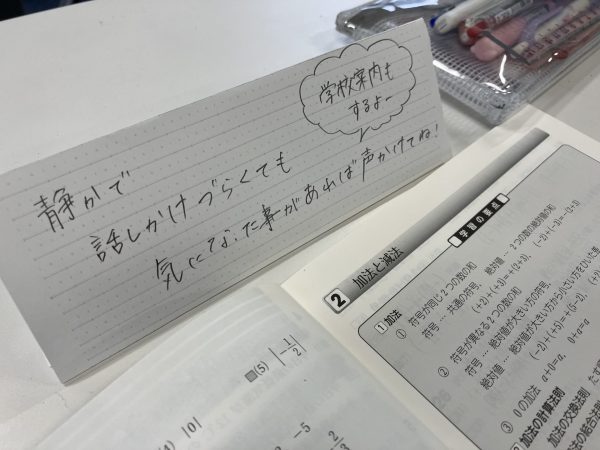 学校案内も
するよー
静かで
話しかけづらくても
気になった事があれば声かけてね！
2 加法と減法
学習の要点
1 加法
① 符号が同じ2つの数の和
符号 … 共通の符号, 絶対値 … 2つの数の絶対値の和
(+2)+(+3)=+(2+3), (-2)+(-3)=-(2+3)
② 符号が異なる2つの数の和
符号 … 絶対値が大きい方の符号,
絶対値 … 絶対値が大きい方から小さい方をひいた差
(-2)+(+5)=+(5-2),
③ 0の加法 a+0=a, 0+a=a
加法の計算法則
加法の交換法則
加法の結合法則
(4) |0|
(5) |-1/2|
-5
2/3